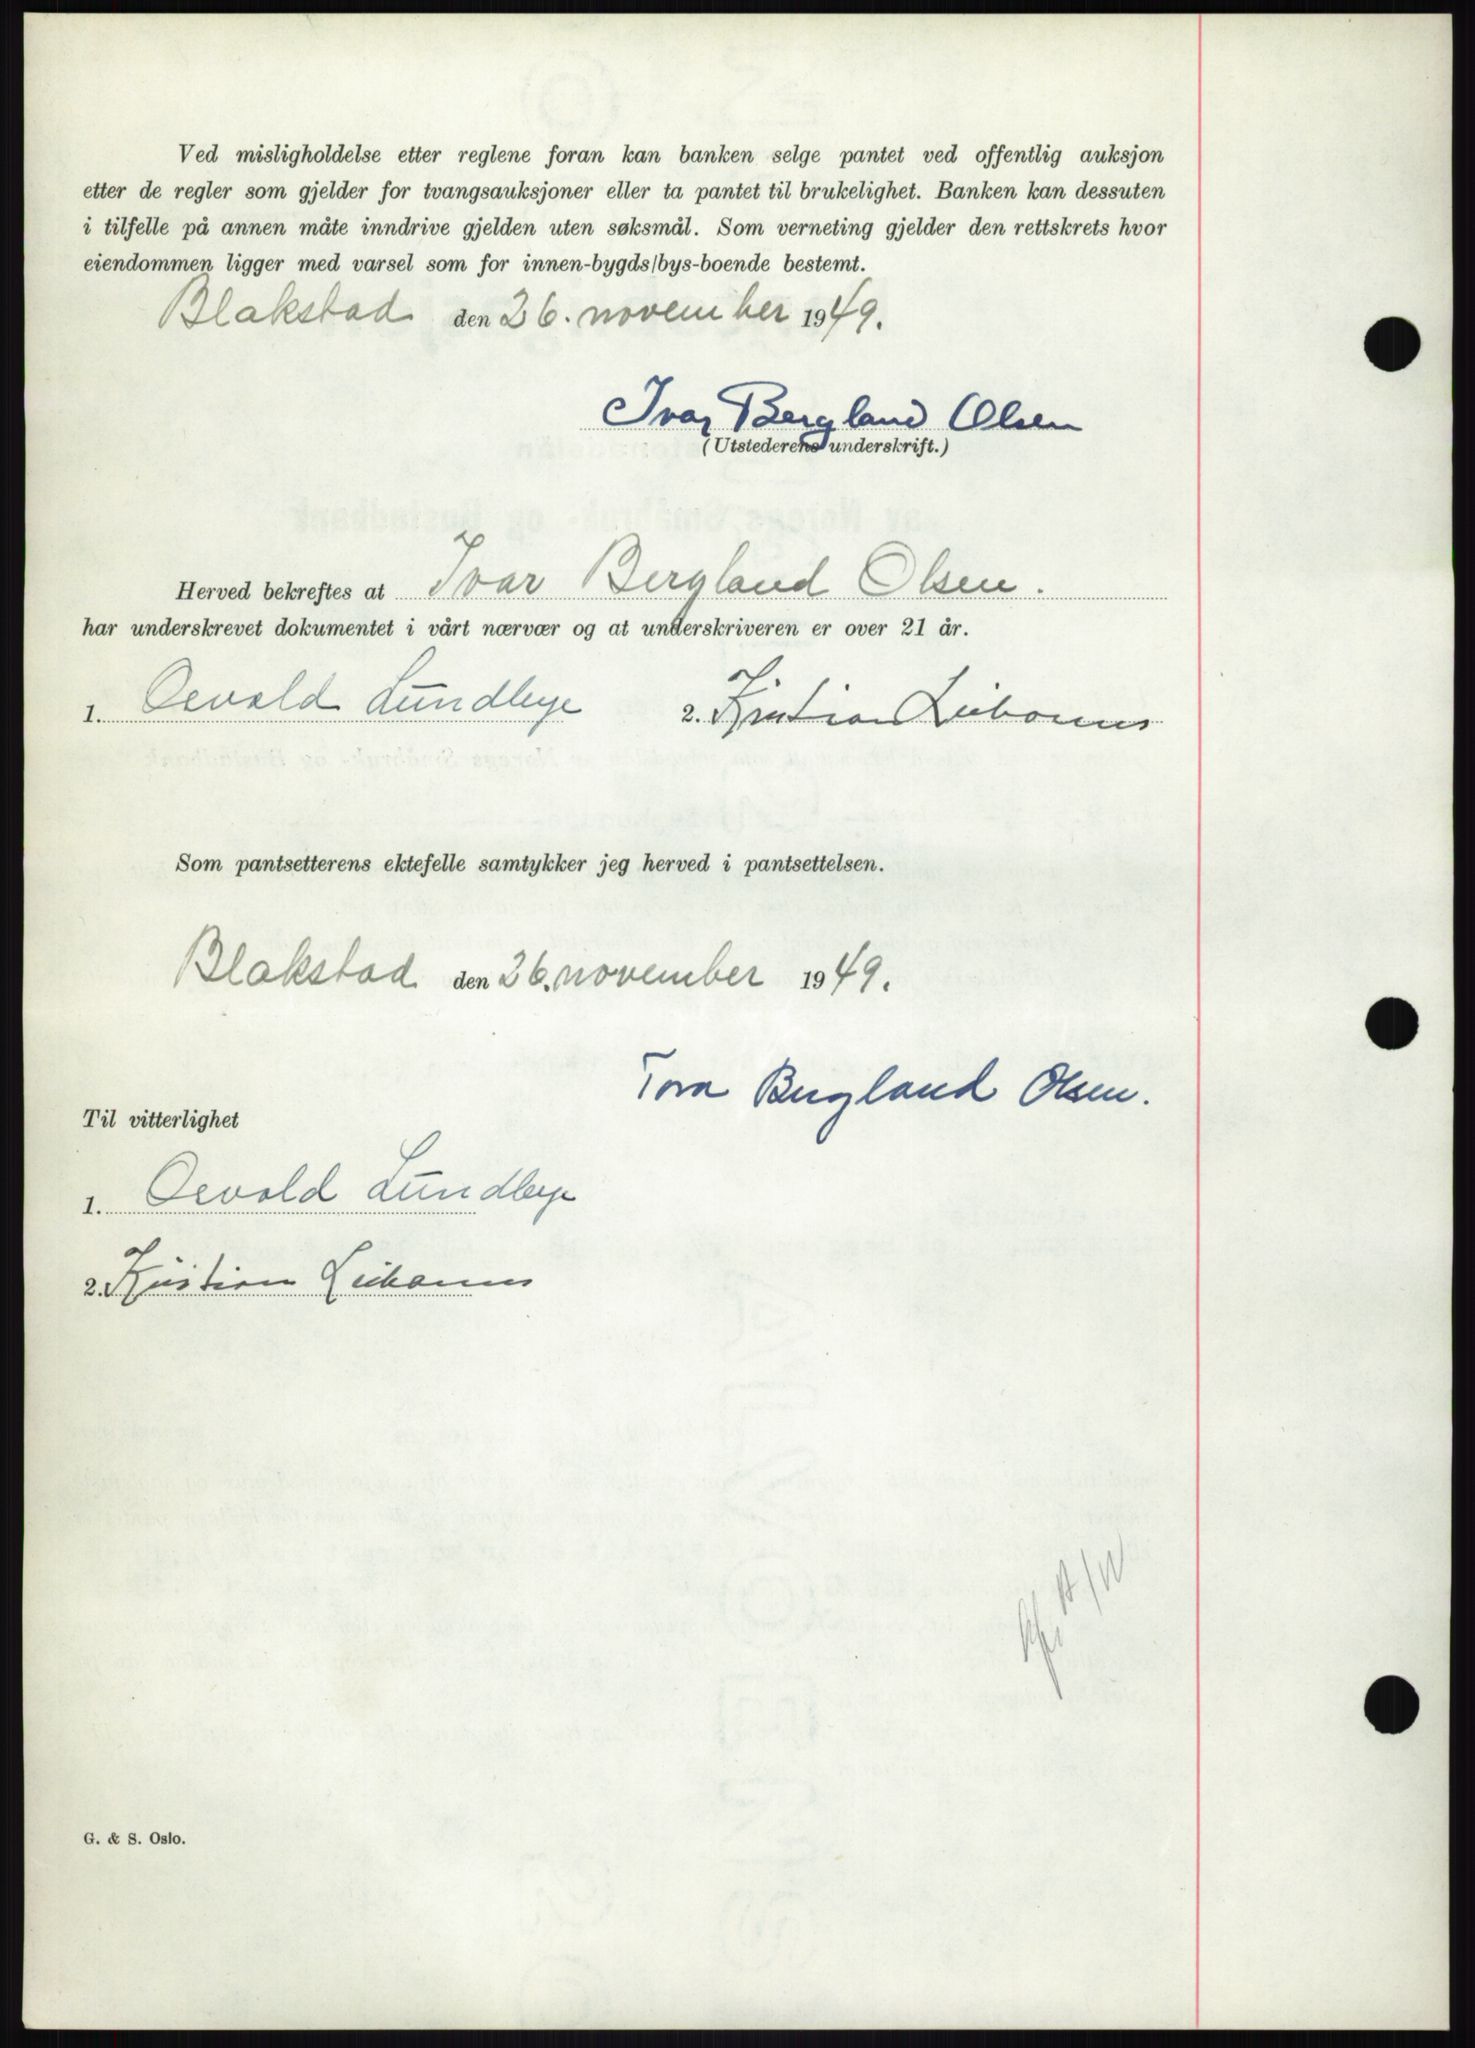 Ved misligholdelse etter reglene foran kan banken selge pantet ved offentlig auksjon
etter de regler som gjelder for tvangsauksjoner eller ta pantet til brukelighet. Banken kan dessuten
i tilfelle på annen måte inndrive gjelden uten søksmål. Som verneting gjelder den rettskrets hvor
eiendommen ligger med varsel som for innen-bygds/bys-boende bestemt.
Blakstad den 26. november 1949.
Ivar Bergland Olsen
(Utstederens underskrift.)
Herved bekreftes at Ivar Bergland Olsen.
har underskrevet dokumentet i vårt nærvær og at underskriveren er over 21 år.
1. Osvald Lundbye 2. Kristian
Som pantsetterens ektefelle samtykker jeg herved i pantsettelsen.
Blakstad den 26. november 1949.
Tora Bergland Olsen.
Til vitterlighet
1. Osvald Lundbye
2. Kristian
G. & S. Oslo.